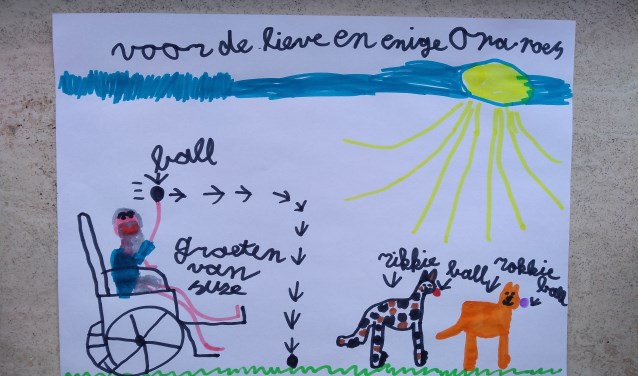 voor de lieve en enige Opa roes
ball
groeten
van
suze
rikkie
ball
rokkie
ball